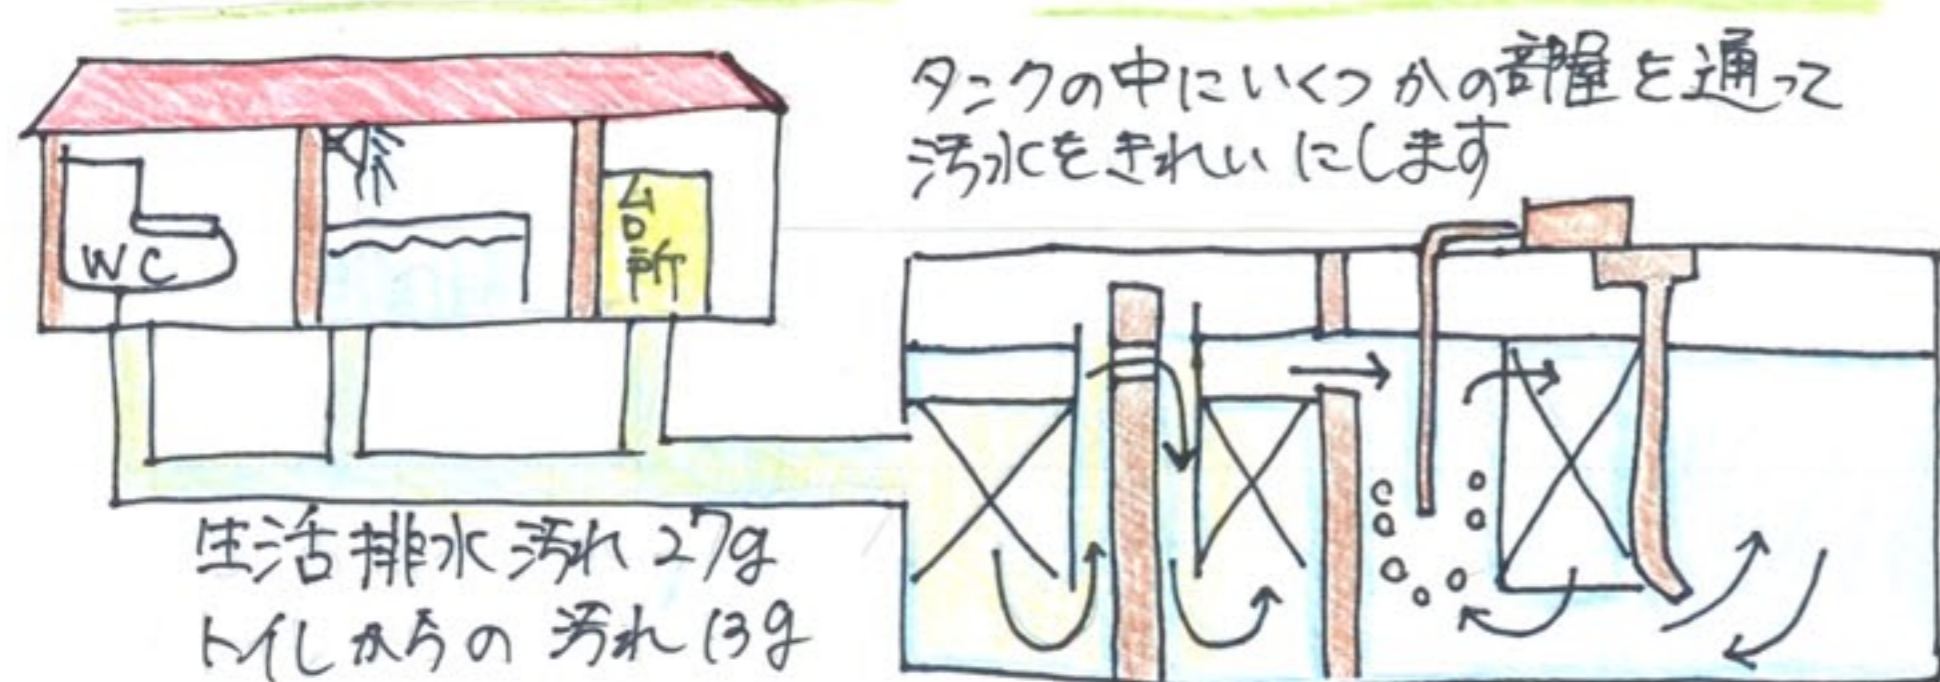 タンクの中にいくつかの部屋を通って
汚水をきれいにします
WC
台所
生活排水汚れ 27g
トイレからの汚れ 13g